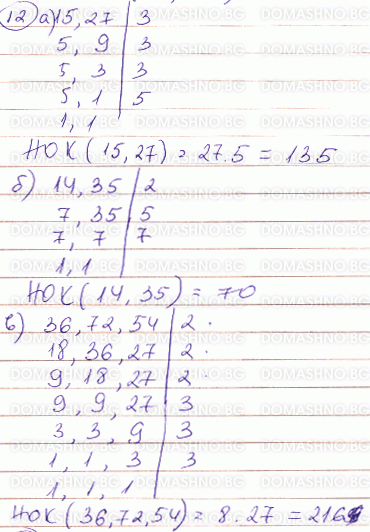 12 а) 15, 27 | 3
5, 9 | 3
5, 3 | 3
5, 1 | 5
1, 1
НОК (15, 27) = 27.5 = 135
б) 14, 35 | 2
7, 35 | 5
7, 7 | 7
1, 1
НОК (14, 35) = 70
в) 36, 72, 54 | 2 .
18, 36, 27 | 2 .
9, 18, 27 | 2 .
9, 9, 27 | 3
3, 3, 9 | 3
1, 1, 3 | 3
1, 1, 1
НОК (36, 72, 54) = 8.27 = 216